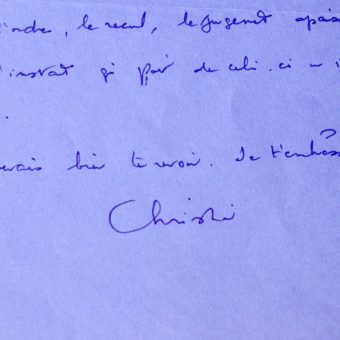 indre, le recul, le jugement apaisé
l'instant qi de celi-ci n
.
erais bien te revoir. Je t'embrass
Christi